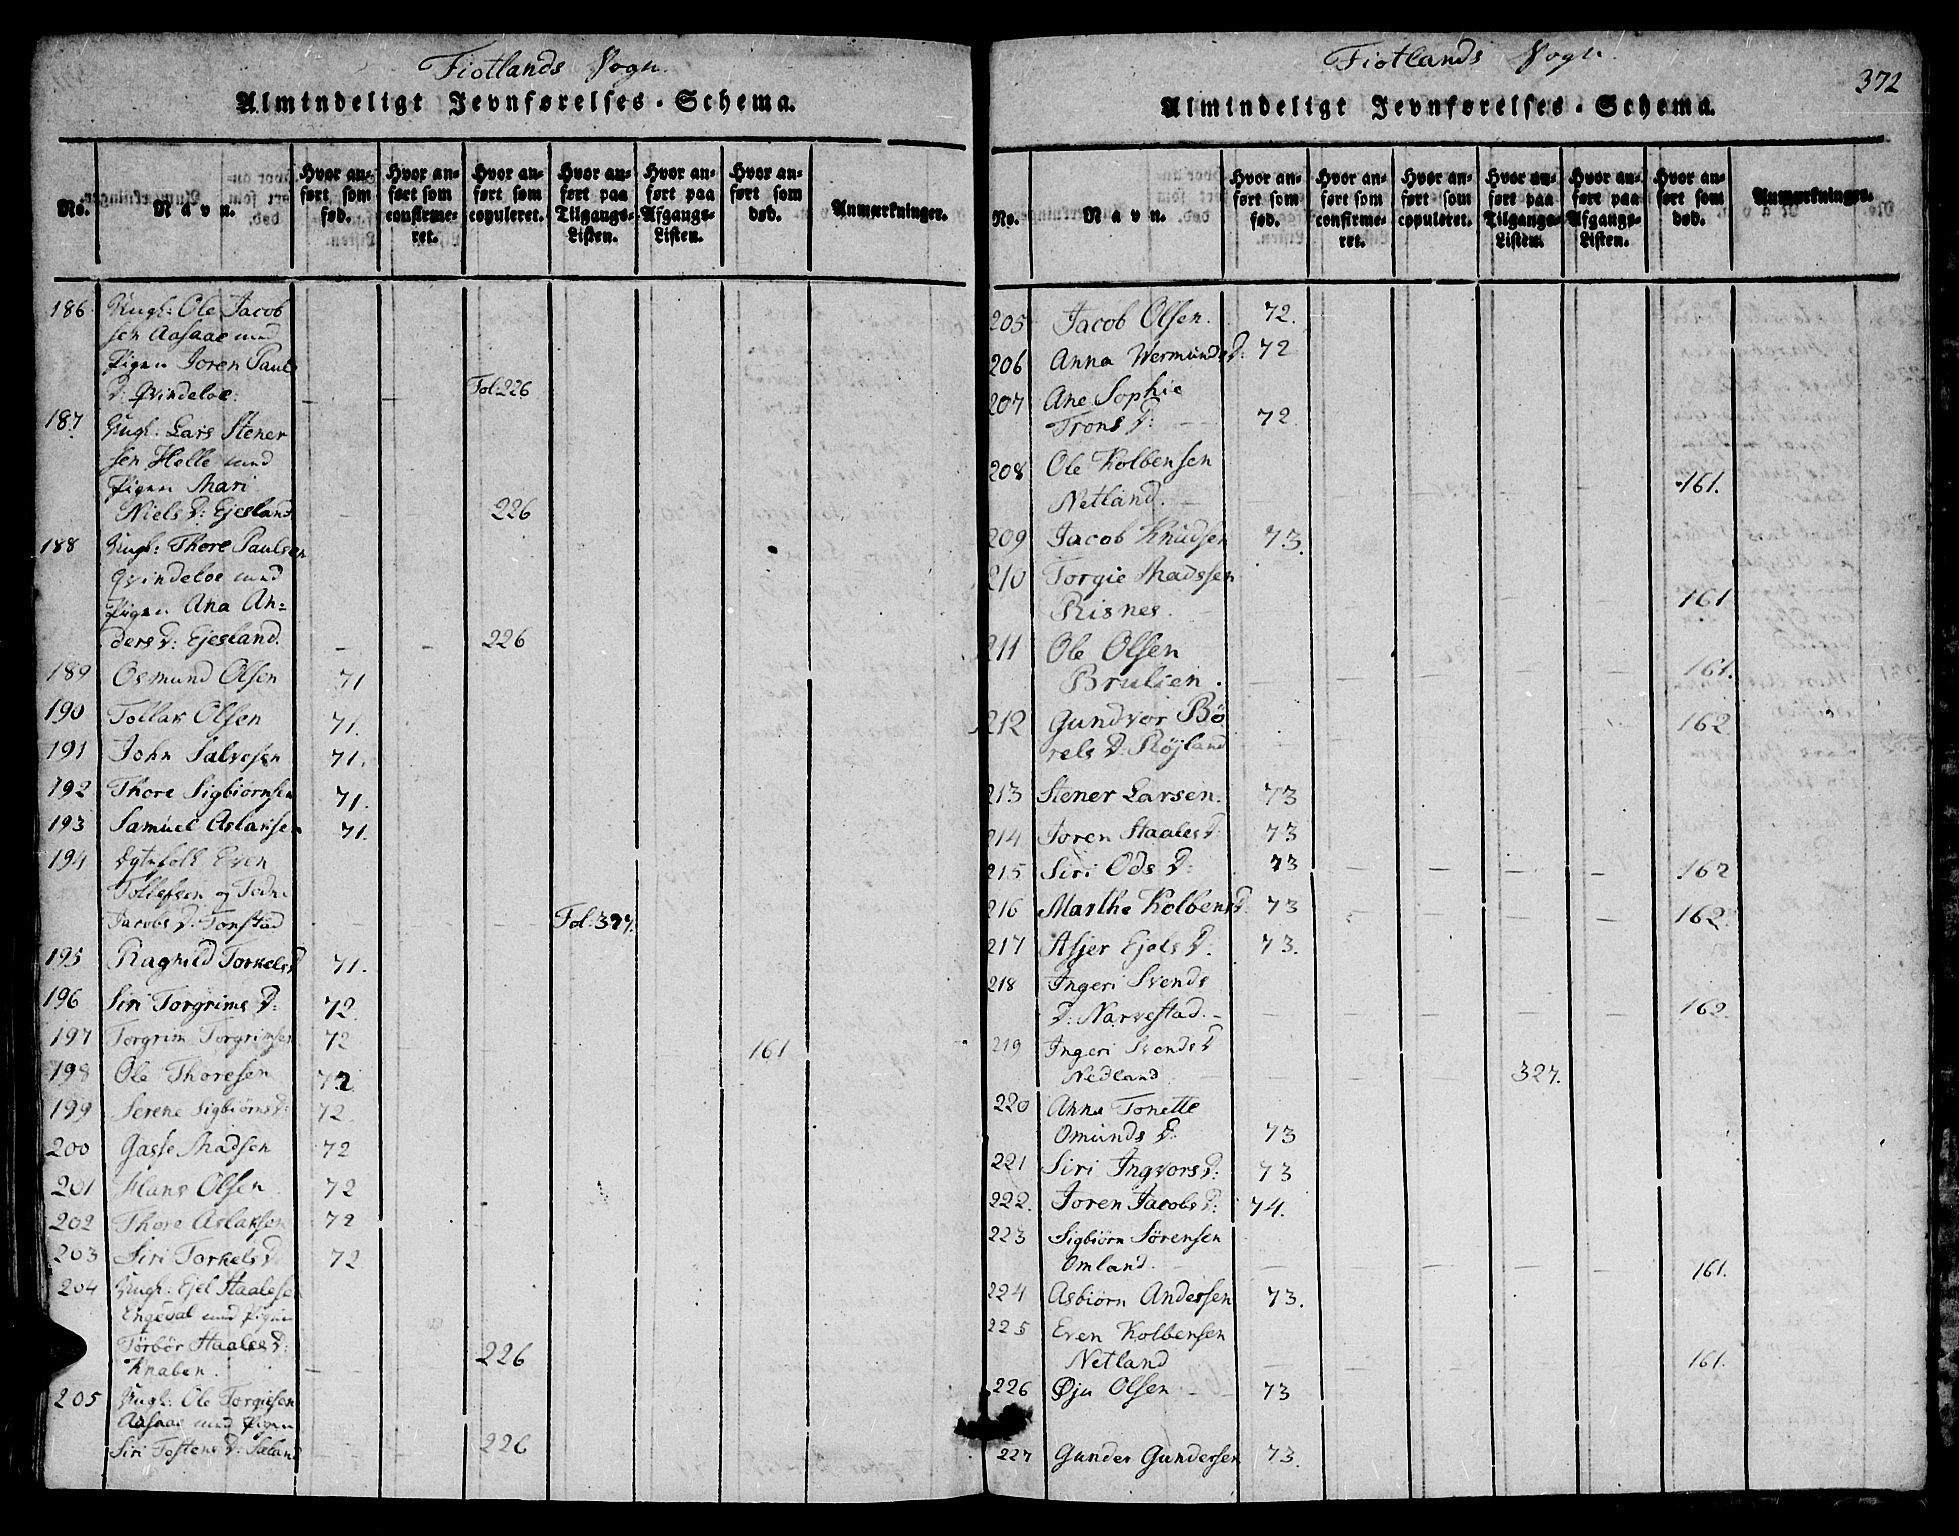 Fiotlands Sogn.
Almindeligt Jevnførelses-Schema.
No. Navn. Hvor anført som fød. Hvor anført som confirmeret. Hvor anført som copuleret. Hvor anført paa Tilgangs-Listen. Hvor anført paa Afgangs-Listen. Hvor anført som død. Anmærkninger.
186 Ungk: Ole Jacob
sen Aasaae med
Pigen Joren Pauls
D: Qvindeloe. Fol: 226
187. Ungk: Lars Stener
sen Helle med
Pigen Mari
Niels D: Ejesland 226
188 Ungk: Thore Paulsen
Qvindeloe med
Pigen Ana An=
ders D: Ejesland. 226
189 Osmund Olsen 71
190 Tollak Olsen 71.
191 John Salvesen 71.
192 Thore Sigbiørnsen 71.
193 Samuel Aslaksen 71.
194 Egtefolk Even
Tollefsen og
Jacobs D: Tonstad Fol: 327.
195 Ragnild Torkels D 71.
196 Siri Torgrims D: 72.
197 Torgrim Torgrimsen 72 161
198 Ole Thoresen 72
199 Serene Sigbiørns D: 72.
200 Gasse Madsen 72
201 Hans Olsen 72
202 Thore Aslaksen 72
203 Siri Torkels D 72
204 Ungk: Ejel Staalesen
Engedal med Pigen
Tørbør Staales D:
Knaben. 226
205 Ungk: Ole Torgiesen
Aasaae med Pigen
Siri Tostens D: Sæland 226
Fiotlands Sogn.
372
Almindeligt Jevnførelses-Schema.
No. Navn. Hvor anført som fød. Hvor anført som confirmeret. Hvor anført som copuleret. Hvor anført paa Tilgangs-Listen. Hvor anført paa Afgangs-Listen. Hvor anført som død. Anmærkninger.
205 Jacob Olsen. 72.
206 Anna Wermunds D: 72
207 Ane Sophie
Trons D: 72.
208 Ole Kolbensen
Netland. 161.
209 Jacob Knudsen 73.
210 Torgie Madssen
Risnes. 161
211 Ole Olsen
Brulien. 161.
212 Gundvor Bø
rels D: Røjland 162
213 Stener Larsen. 73
214 Joren Staales D: 73
215 Siri Ods D: 73 162
216 Marthe Kolbens D. 73 162.
217 Asjer Ejels D: 73.
218 Ingeri Svends
D: Narvestad. 162.
219 Ingeri Svends D
Nedland 327.
220 Anna Tonette
Omunds D. 73
221 Siri Ingvors D: 73
222. Joren Jacobs D: 74.
223 Sigbiørn Sørensen
Omland. 161.
224 Asbiørn Andersen 73.
225 Even Kolbensen
Netland 161.
226 Øju Olsen 73
227 Gunder Gundersen 73.